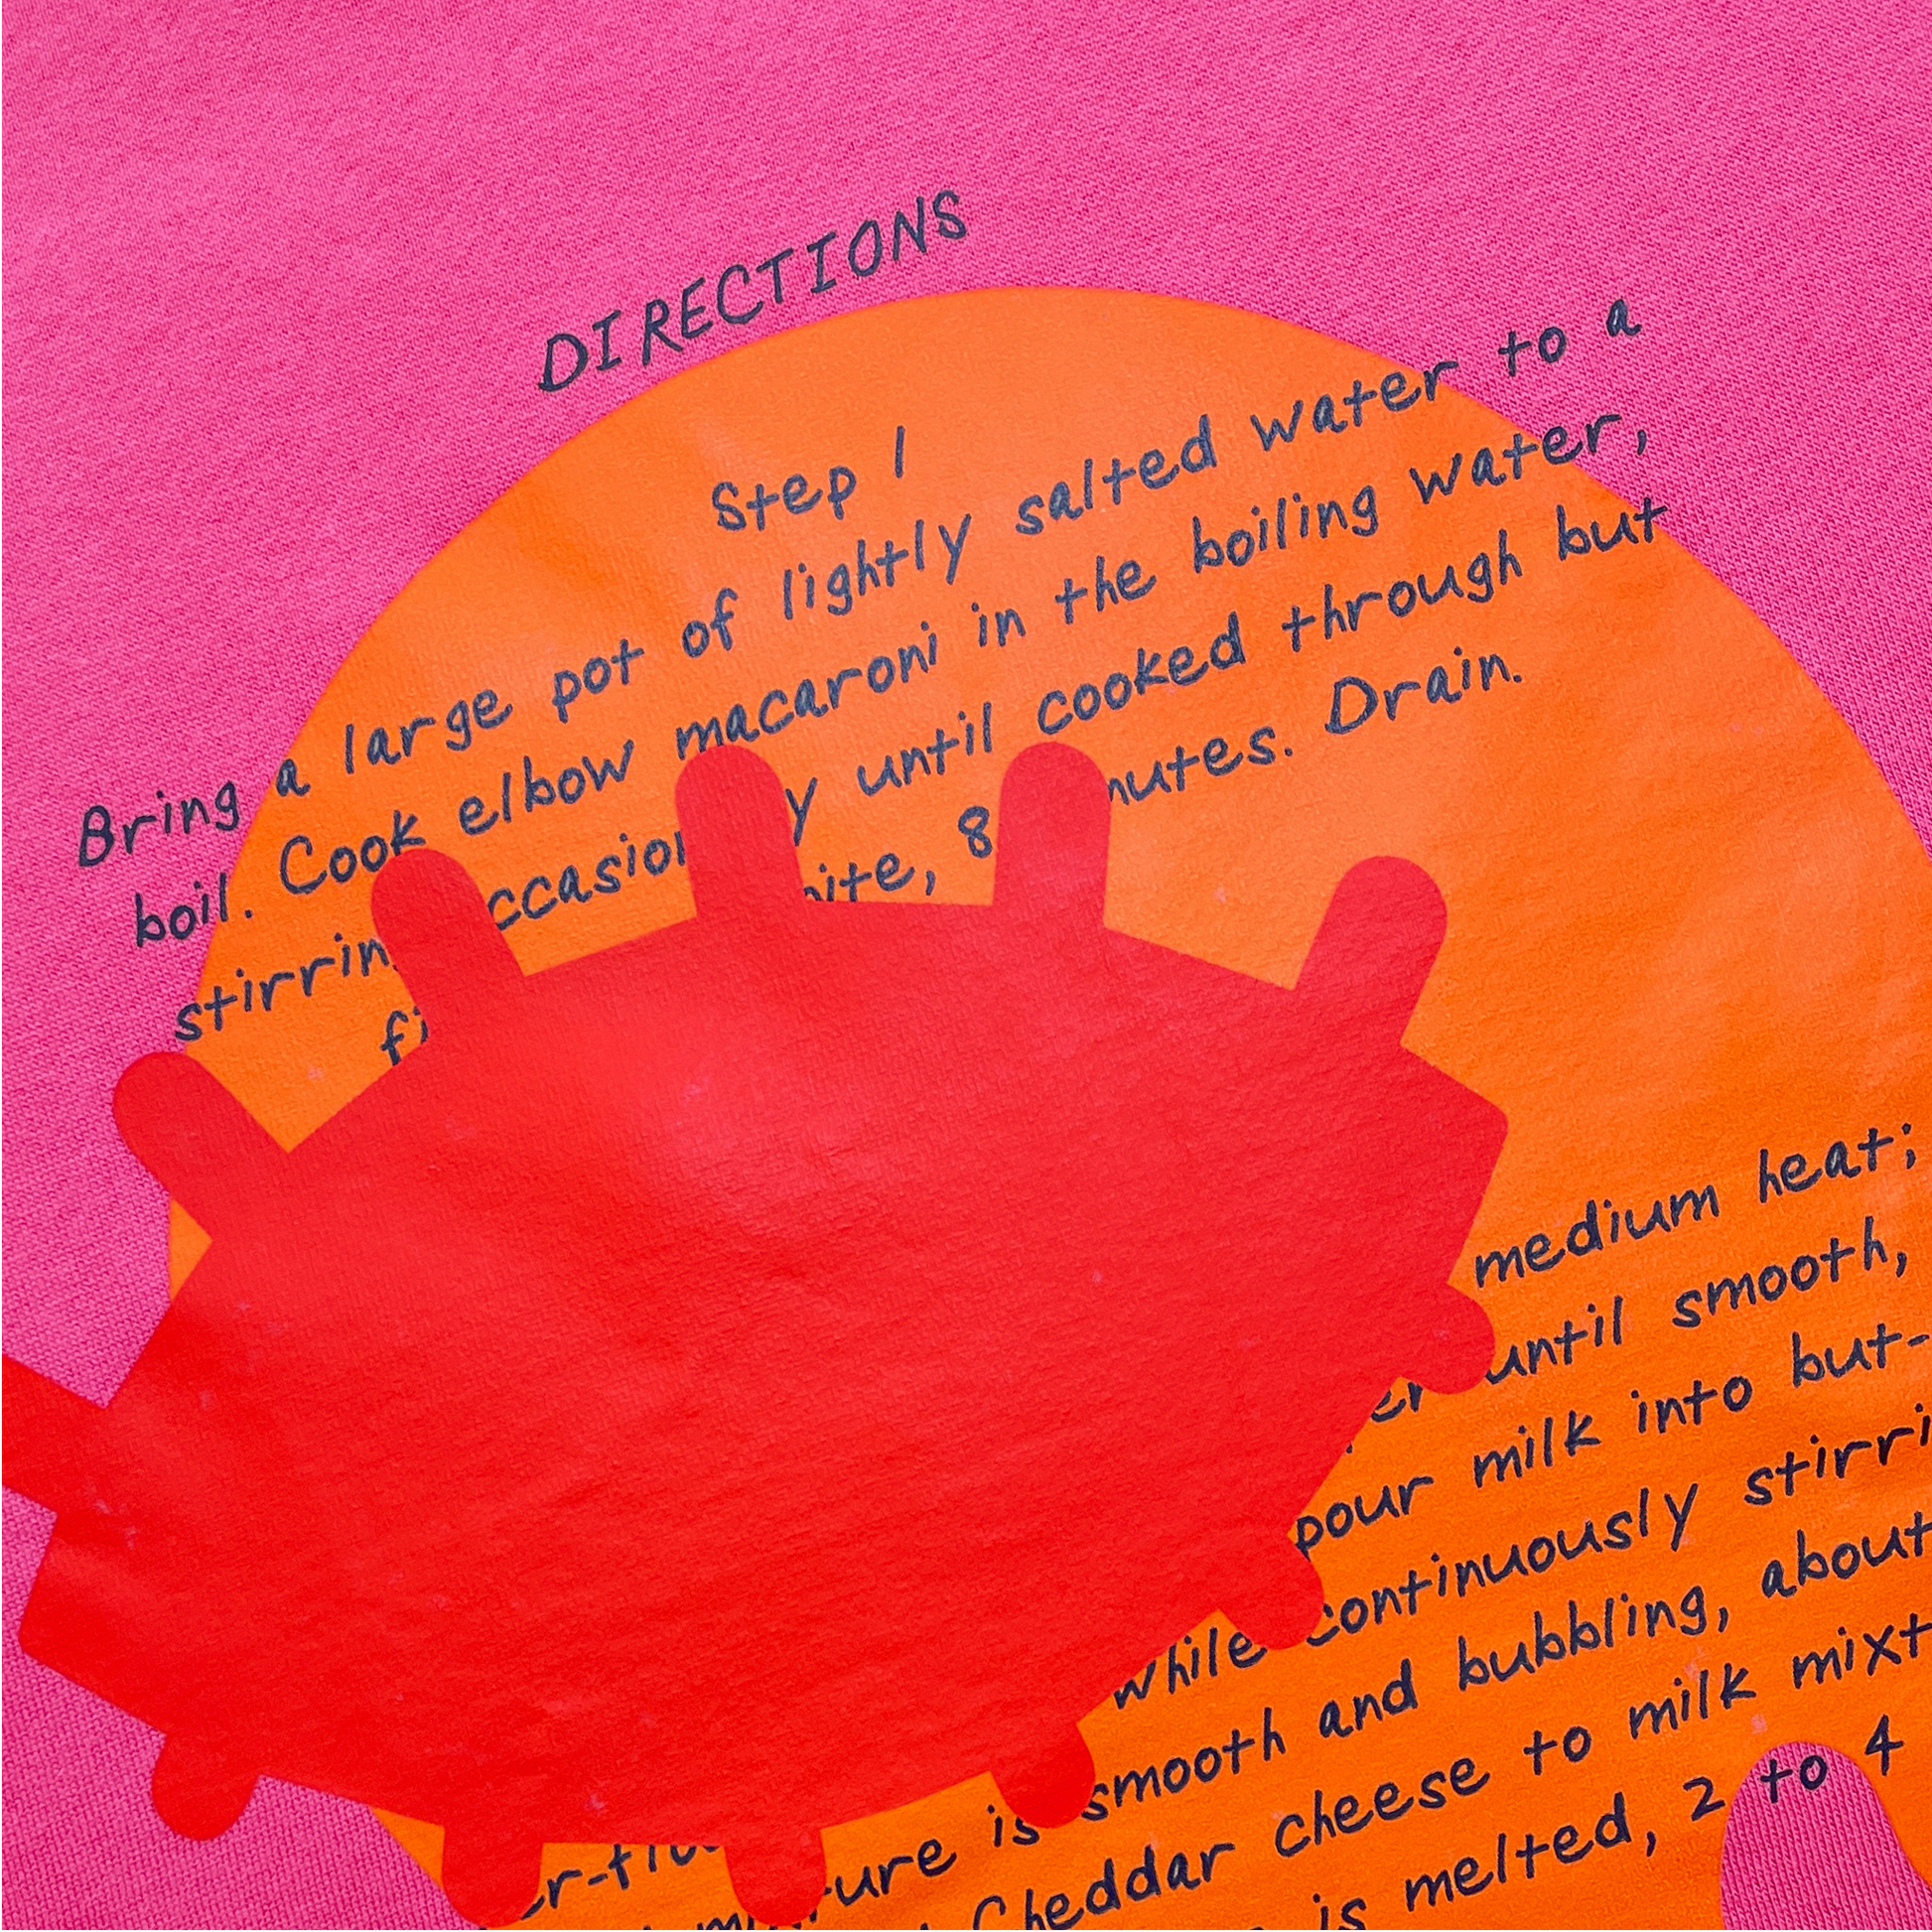 DIRECTIONS
Step 1
Bring a large pot of lightly salted water to a
boil. Cook elbow macaroni in the boiling water,
until cooked through but
8 Drain.
medium heat;
until smooth,
pour milk into but-
While continuously stirri
is smooth and bubbling, about
Cheddar cheese to milk mixt
is melted, 2 to 4